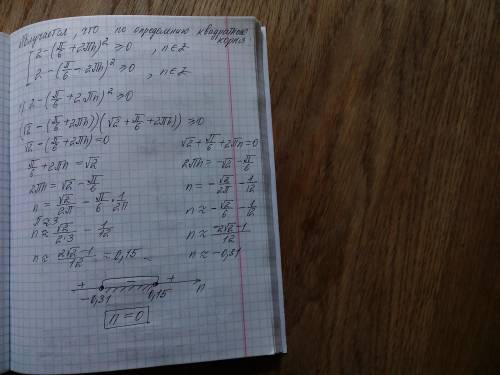 Получается, что по определению квадратного корня
[2-(π/6+2πn)² ≥0 , n∈Z
[2-(π/6-2πn)² ≥0 , n∈Z
1) 2-(π/6+2πn)² ≥0
(√2-(π/6+2πn))(√2+π/6+2πn) ≥0
√2-(π/6+2πn)=0
π/6+2πn=√2
2πn=√2-π/6
n=√2/2π-π/6·1/2π
π≈3
n≈√2/2·3-1/12
n≈2√2-1/12≈0,15
√2+π/6+2πn=0
2πn=-√2-π/6
n=-√2/2π-1/12
n≈-√2/6-1/12
n≈-2√2-1/12
n≈-0,31
+ - +
-0,31 0,15 n
n=0